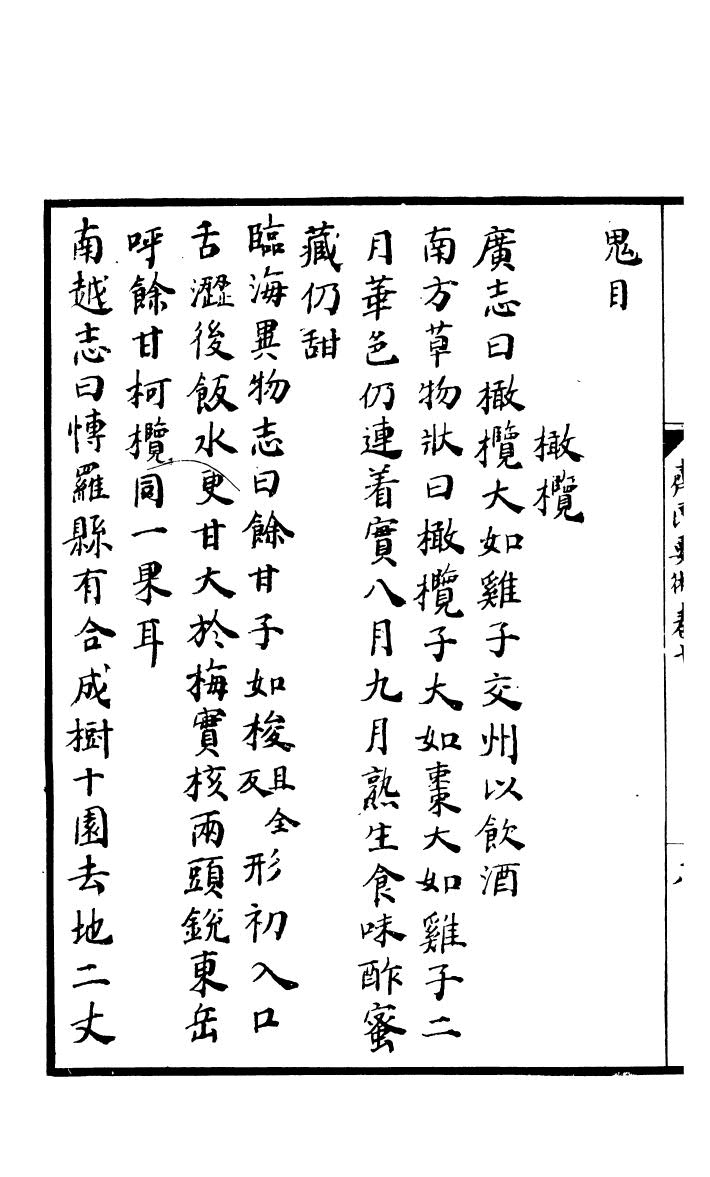 齊民要術卷十
鬼目
橄欖
廣志曰橄欖大如雞子交州以飲酒
南方草物狀曰橄欖子大如棗大如雞子二
月華色仍連着實八月九月熟生食味酢蜜
藏仍甜
臨海異物志曰餘甘子如梭且全反形初入口
舌澀後飯水更甘大於梅實核兩頭銳東岳
呼餘甘柯欖同一果耳
南越志曰愽羅縣有合成樹十圍去地二丈